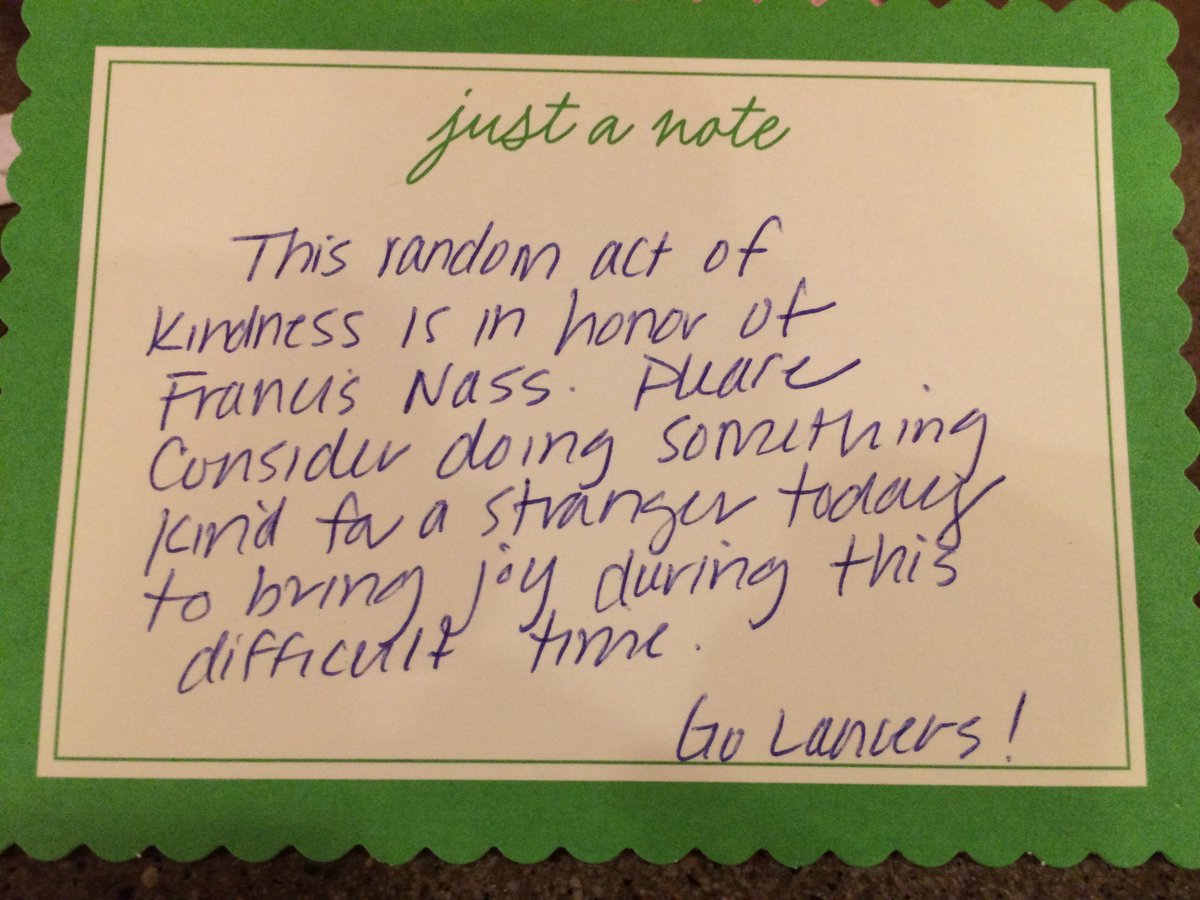 just a note
This random act of
kindness is in honor of
Francis Nass. Please
consider doing something
kind for a stranger today
to bring joy during this
difficult time.
Go Lancers!